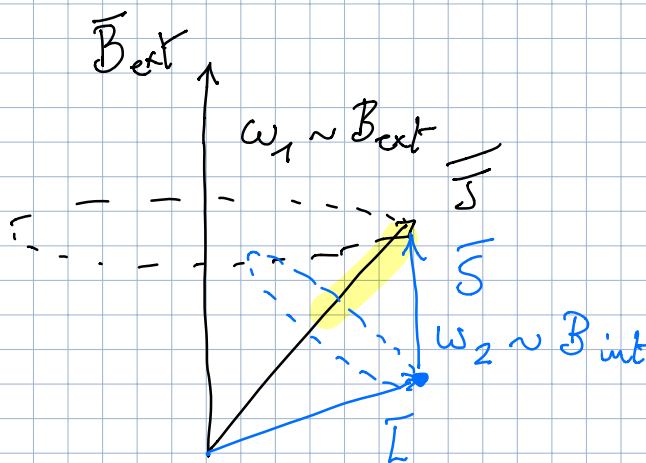 B̅ext
ω₁ ~ Bext
J̅
S̅
ω₂ ~ B int
L̅